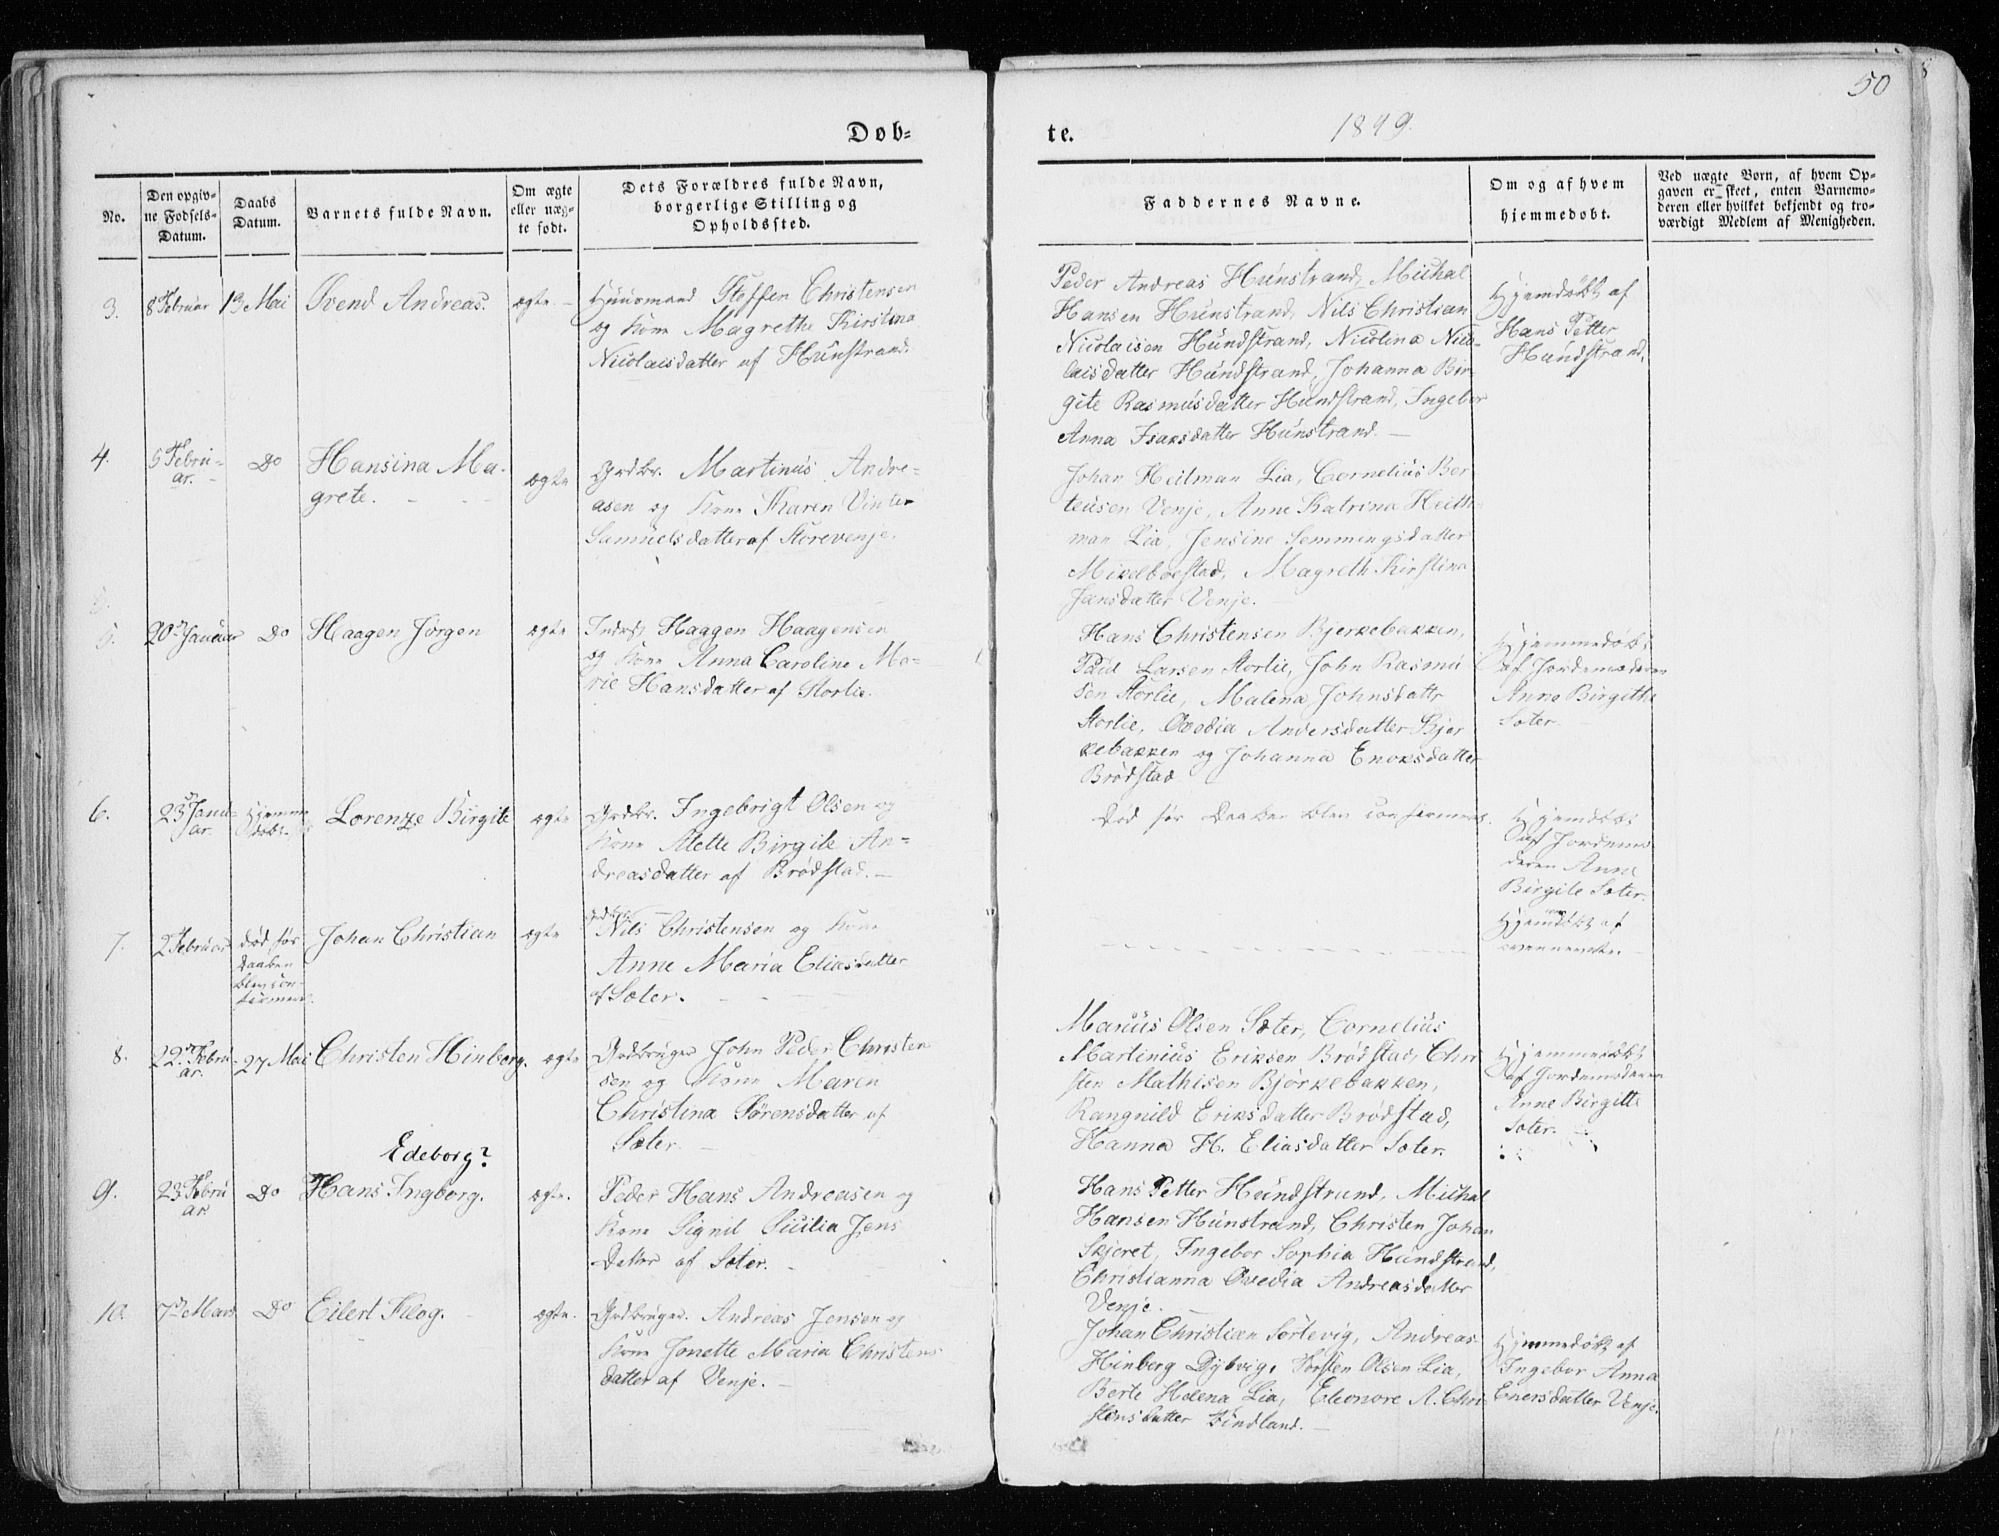 50
Døb-
te.
1849.
No.
Den opgiv-
ne Fødsels-
Datum.
Daabs
Datum.
Barnets fulde Navn.
Om ægte
eller uæg-
te født.
Dets Forældres fulde Navn,
borgerlige Stilling og
Opholdssted.
Faddernes Navne.
Om og af hvem
hjemmedøbt.
Ved uægte Børn, af hvem Op-
gaven er skeet, enten Barnemo-
deren eller hvilket bekjendt og tro-
værdigt Medlem af Menigheden.
3.
8 Februar
19 Mai
Svend Andreas.
ægte.
Huusmand Steffen Christensen
og Kone Magrethe Kirstina
Nicolaisdatter af Hunstrand.
Peder Andreas Hunstrand, Michal
Hansen Hunstrand, Nils Christian
Nicolaisen Hundstrand, Nicolina Nico-
laisdatter Hundstrand, Johanna Bir
gite Rasmusdatter Hundstrand, Ingebor
Anna Isaksdatter Hunstrand.
Hjemdøbt af
Hans Petter
Hundstrand.
4.
5 Febru-
ar.
Do
Hansina Ma-
grete.
ægte
Grdbr. Martinus Andre-
asen og Kone Karen Vinter
Samuelsdatter af Storevenje.
Johan Heitman Lia, Cornelius Ber
teusen Venje, Anne Katrina Heith
man Lia, Jensine Semmingsdatter
Mikelboestad, Magreth Kirstina
Jansdatter Venje.
5.
20 Januar
Do
Haagen Jørgen
ægte
Inders. Haagen Haagensen
og Kone Anna Caroline Ma-
rie Hansdatter af Storlie.
Hans Christensen Bjerkebakken,
Paul Larsen Storlie, John Rasmu
sen Storlie, Malena Johnsdattr
Storlie, Ovedia Andersdatter Bjer
kebakken og Johanna Enoksdatter
Brødstad
Hjemmedøbt
af Jordemoderen
Anne Birgitte
Soter.
6.
23 Janu-
ar.
Hjemme
døbt.
Lorenze Birgite
ægte
Grdbr. Ingebrigt Olsen og
Kone Alette Birgite An-
dreasdatter af Brødstad.
Død før Daaben blev confirmeret.
Hjemdøbt
af Jordemo
deren Anne
Birgite Soter.
7.
2 Februar
død før
Daaben
blev con-
firmeret.
Johan Christian
ægte
Nils Christensen og Kone
Anne Maria Eliasdatter
af Soter.
Hjemdøbt af
ovennevnte.
8.
22 Febru-
ar.
27 Mai
Christen Hinberg.
ægte
Grdbruger John Peder Christen
sen og Kone Maren
Christina Sørensdatter af
Soter.
Marius Olsen Soter, Cornelius
Martinius Eriksen Brødstad, Chri
sten Mathisen Bjørkebakken,
Rangnild Eriksdatter Brødstad,
Hanna H. Eliasdatter Soter.
Hjemmedøbt
af Jordemoderen
Anne Birgitte
Soter.
Edeborg?
9.
23 Febru
ar
Do
Hans Ingborg.
ægte.
Peder Hans Andreasen og
Kone Signil Sicilia Jens
Datter af Soter.
Hans Petter Hundstrand, Michal
Hansen Hunstrand, Christen Johan
Skjeret, Ingebor Sophia Hundstrand,
Christianna Ovedia Andreasdatter
Venje.
10.
7 Mars
Do
Eilert Klog.
ægte.
Grdbruger. Andreas Jensen og
Kone Jonette Maria Christens
datter af Venje.
Johan Christian Sørtevig, Andreas
Hinberg Dybvig, Torsten Olsen Lia,
Berte Helena Lia, Eleonore A. Chri
stensdatter Tindland.
Hjemmedøbt af
Ingebor Anna
Enersdatter Venje.